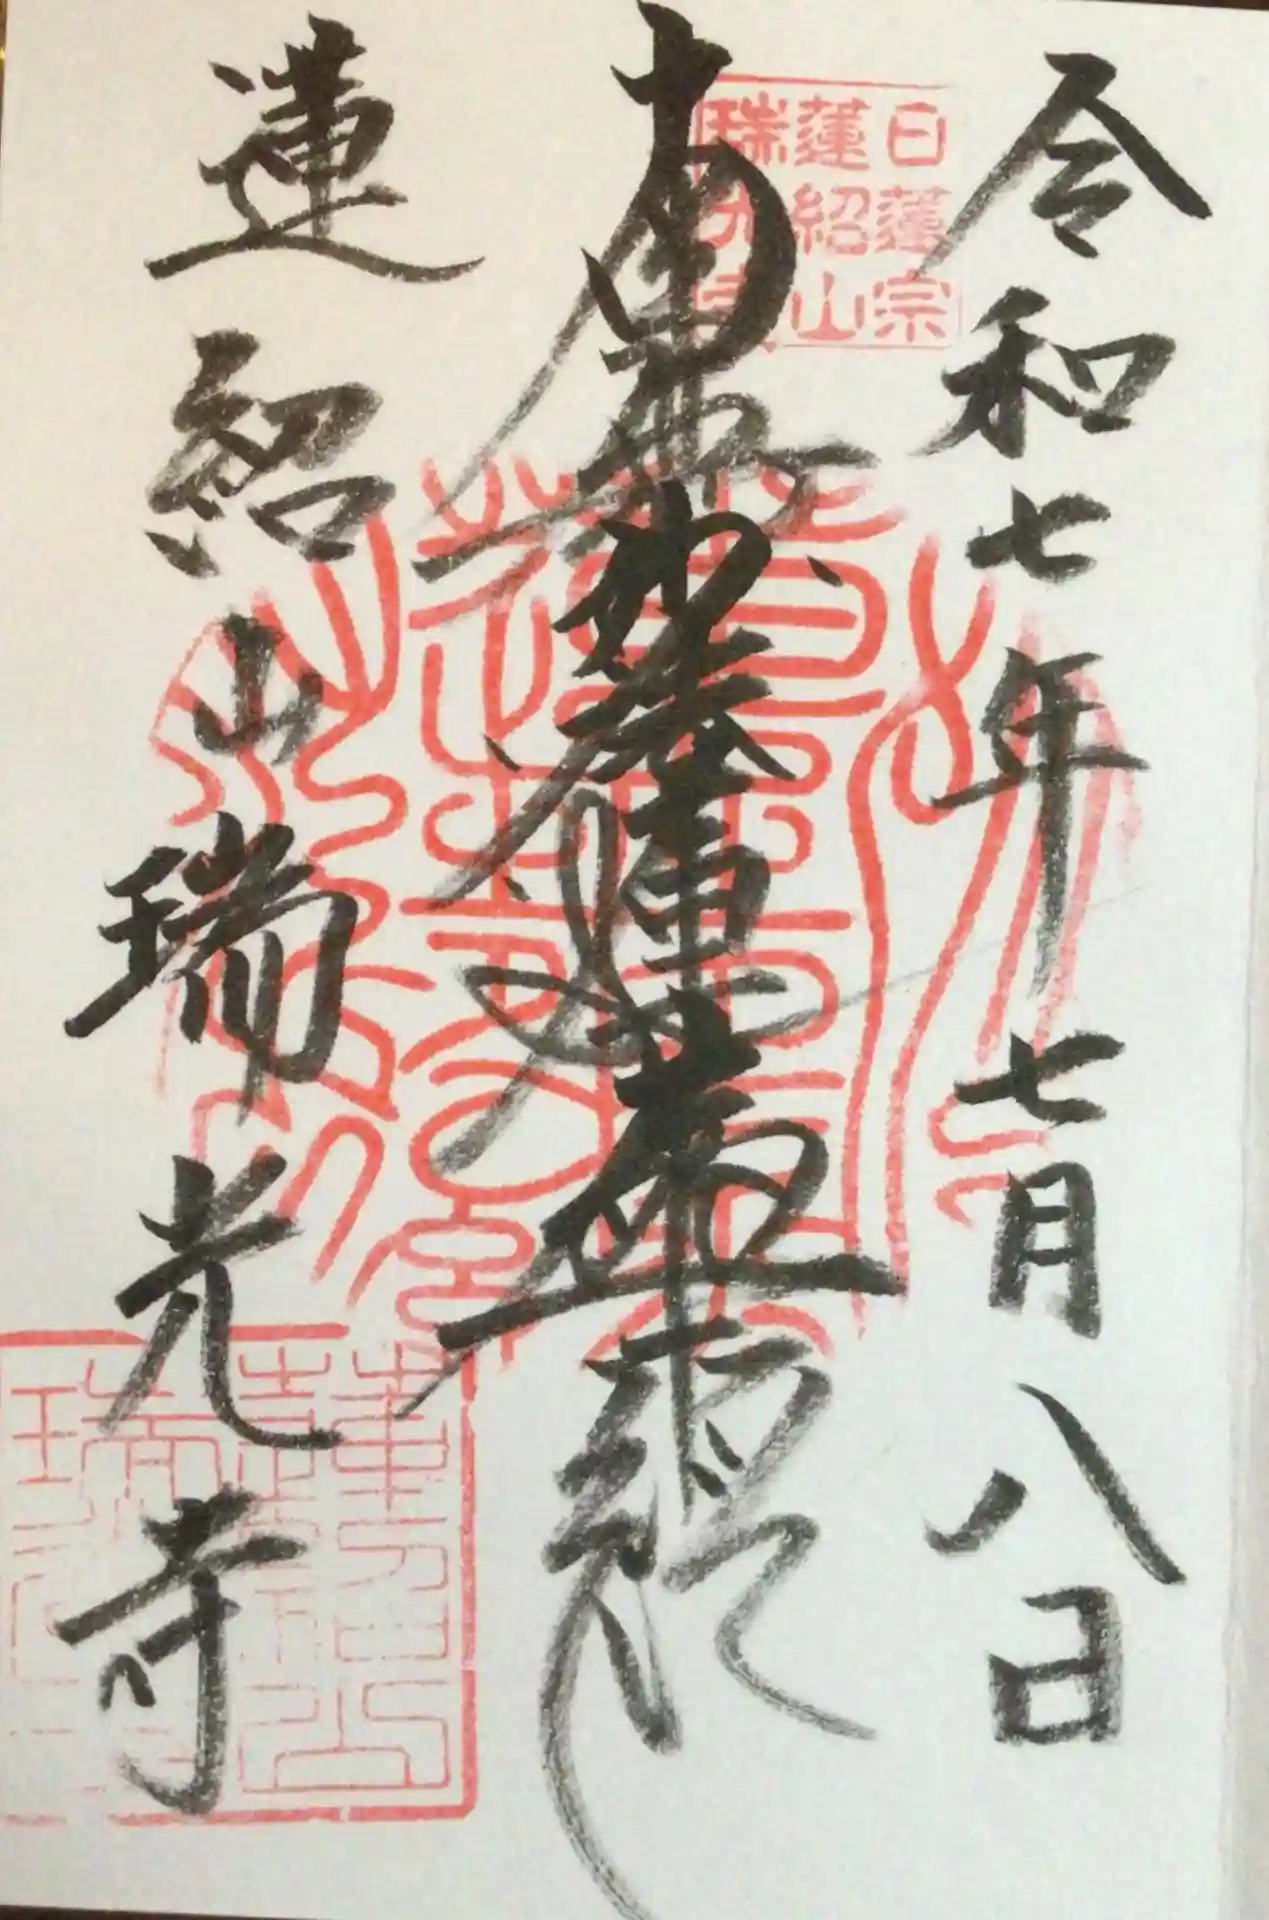 令和七年七月八日
日蓮宗
蓮紹山
瑞光寺
南無妙法蓮華経
蓮紹山瑞光寺